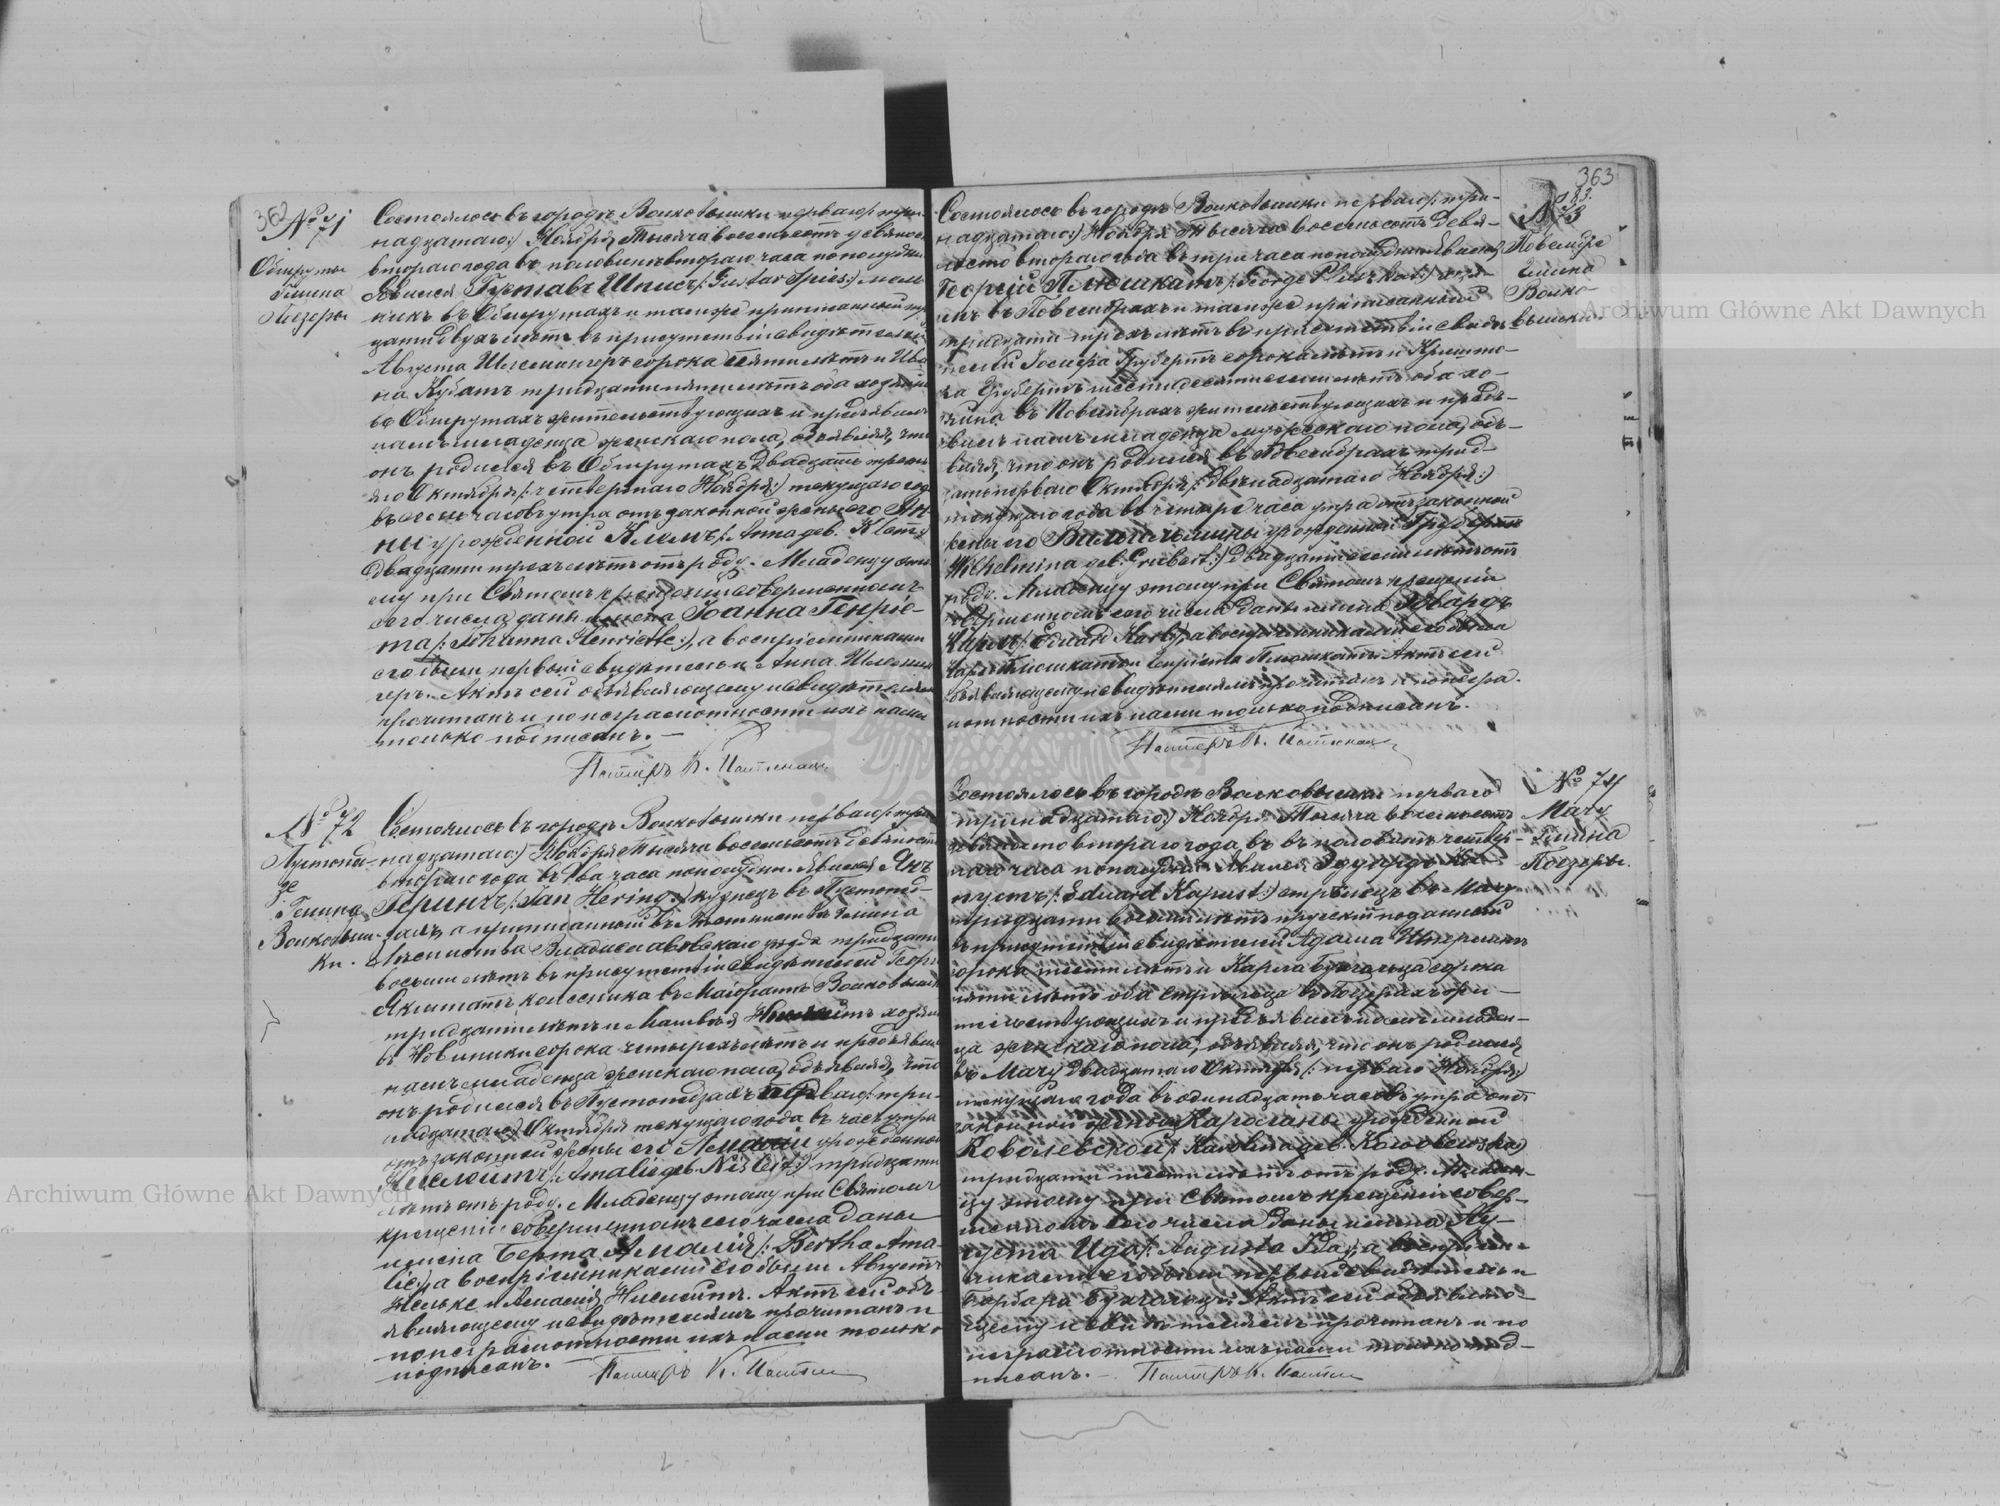 362
№ 71
Обшруты
Гмина
Позеры
Состоялось въ городѣ Волковышки перваго /: три-
надцатаго :/ Ноября Тысяча восемьсотъ девяносто
втораго года въ половинѣ втораго часа по полудни
Явился Густавъ Шписъ /: Gustav Spies :/ мель-
никъ въ Обшрутахъ и тамже приписанный
двухъ лѣтъ въ присутствіи свидѣтелей
Августа сорока пяти лѣтъ и Ива-
на Кубатъ тридцати пяти лѣтъ оба хозяина
въ Обшрутахъ жительствующихъ и предъявилъ
намъ младенца женскаго пола, объявляя, что
онъ родился въ Обшрутахъ двадцать треть-
яго Октября /: четвертаго Ноября :/ текущаго года
въ часовъ утра отъ законной жены его Ан-
ны урожденной Клемъ /: Anna geb. Klem :/
двадцати трехъ лѣтъ отъ роду. Младенцу это-
му при Святомъ крещеніи совершенномъ
сего числа даны имена Іоанна Генріе-
та /: Johanna Henriette :/, а воспріемниками
его были первый свидѣтель и Анна
геръ. Актъ сей объявляющему и свидѣтелямъ
прочитанъ и по неграмотности ихъ нами
только подписанъ. —
Пасторъ К.
№ 72
Гмина
Волковыш-
ки.
Состоялось въ городѣ Волковышки перваго /: три-
надцатаго :/ Ноября Тысяча восемьсотъ девяносто
втораго года въ два часа по полудни. Явился Янъ
Герингъ /: Jan Hering :/ кузнецъ въ Пустопѣд-
захъ, а приписанный въ гмина
Владиславовскаго уѣзда тридцати
восьми лѣтъ въ присутствіи свидѣтелей
колесника въ Маіоратѣ Волковышки
тридцати лѣтъ и хозяина
въ Новиники сорока четырехъ лѣтъ и предъявилъ
намъ младенца женскаго пола, объявляя, что
онъ родился въ перваго /: три-
надцатаго :/ Октября текущаго года въ часъ утра
отъ законной жены его Амаліи урожденной
/: Amalie geb. :/ тридцати
лѣтъ отъ роду. Младенцу этому при Святомъ
крещеніи совершенномъ сего числа даны
имена Берта Амалія /: Bertha Ama-
lie :/, а воспріемниками его были Августъ
и Амалія Актъ сей объ-
являющему и свидѣтелямъ прочитанъ и
по неграмотности ихъ нами только
подписанъ. —
Пасторъ К.
363
№ 73
Повембры
Гмина
Волко-
вышки.
Состоялось въ городѣ Волковышки перваго /: три-
надцатаго :/ Ноября Тысяча восемьсотъ девя-
носто втораго года въ три часа по полудни. Явился
Георгій Плюшкатъ /: George :/ хозя-
инъ въ Повембрахъ и тамже приписанный
тридцати трехъ лѣтъ въ присутствіи свидѣ-
телей Іосифа Грубертъ сорока лѣтъ и Кристо-
фа Грубертъ шестидесяти лѣтъ оба хо-
зяина въ Повембрахъ жительствующихъ и предъ-
явилъ намъ младенца мужескаго пола, объ-
являя, что онъ родился въ Повембрахъ трид-
цать перваго Октября /: двѣнадцатаго Ноября :/
текущаго года въ четыре часа утра отъ законной
жены его Вильгельмины урожденной Грубертъ
Wilhelmina geb. Grubert :/ двадцати лѣтъ отъ
роду. Младенцу этому при Святомъ крещеніи
совершенномъ сего числа даны имена Эдвардъ
Карлъ /: Eduard Karl :/, а воспріемниками его были
Карлъ Плюшкатъ и Генріета Плюшкатъ. Актъ сей
объявляющему и свидѣтелямъ прочитанъ и по негра-
мотности ихъ нами только подписанъ.
Пасторъ К.
№ 74
Mary
Гмина
Позеры.
Состоялось въ городѣ Волковышки перваго
тринадцатаго :/ Ноября Тысяча восемьсотъ
девяносто втораго года, въ въ половинѣ четвер-
таго часа по полудни. Явился Эдуардъ Ка-
пустъ /: Eduard Kapust :/ стрѣлецъ въ Mary
тридцати восьми лѣтъ прускій подданный
въ присутствіи свидѣтелей Адама
сорока шести лѣтъ и Карла сорока
пяти лѣтъ оба стрѣльца въ Позерахъ жи-
тельствующихъ и предъявилъ намъ младен-
ца женскаго пола, объявляя, что онъ родился
въ Mary двадцатаго Октября /: перваго Ноября :/
текущаго года въ одинадцать часовъ утра отъ
законной жены его Каролины урожденной
Ковалевской /: Karolina geb. :/
тридцати шести лѣтъ отъ роду. Младен-
цу этому при Святомъ крещеніи совер-
шенномъ сего числа даны имена Ав-
густа Ида /: Augusta Ida :/, а воспріем-
никами его были первый свидѣтель и
Барбара Актъ сей объявляю-
щему и свидѣтелямъ прочитанъ и по
неграмотности ихъ нами только под-
писанъ. —
Пасторъ К.
Archiwum Główne Akt Dawnych
Archiwum Główne Akt Dawnych